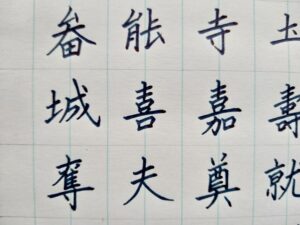 畚能寺
城喜嘉壽
奪夫奠就